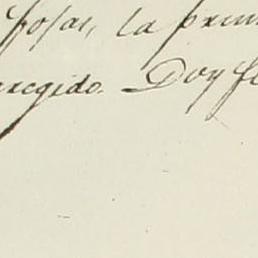 fosas, la prim
regido. Doy f